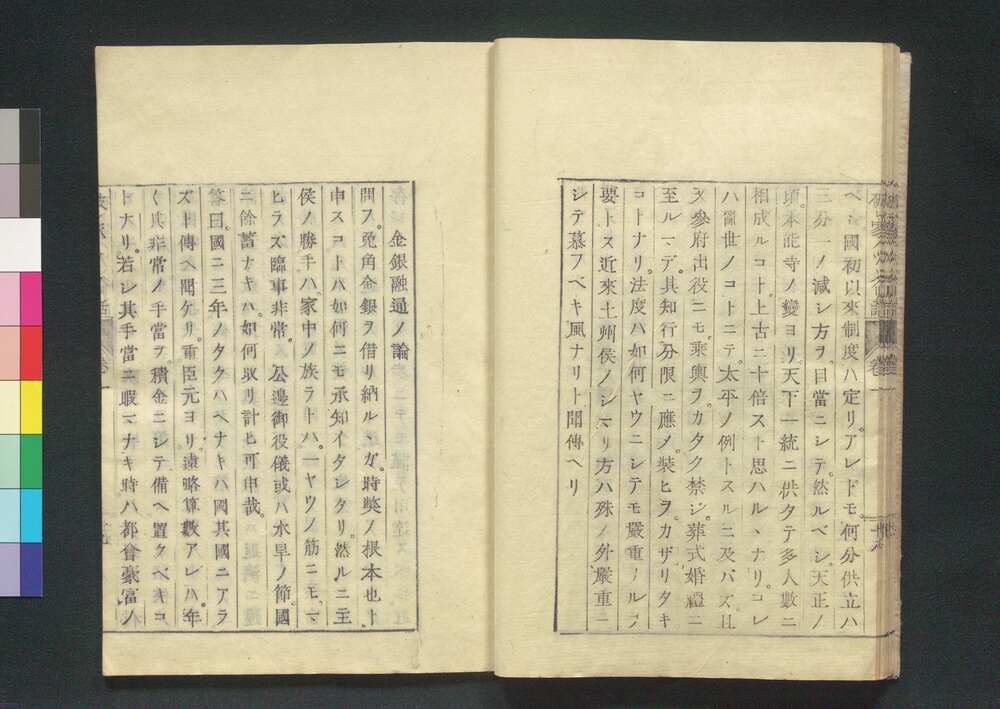 ベシ國初以來制度ハ定リ。アレドモ。何分供立ハ
三分一ノ減シ方ヲ。目當ニシテ。然ルベシ。天正ノ
頃。本能寺ノ變ヨリ。天下一統ニ供タテ多人數ニ
相成ルコト。上古ニ十倍スト思ハルヽナリ。コレ
ハ亂世ノコトニテ。太平ノ例トスルニ及バズ。且
又參府出役ニモ。乘輿ヲ。カタク禁シ。葬式婚禮ニ
至ルマデ。其知行分限ニ應ノ。裝ヒヲ。カザリタキ
コトナリ。法度ハ如何ヤウニシテモ嚴重ノルヲ
要トス近來土州侯ノシマリ方ハ殊ノ外嚴重ニ
シテ慕フベキ風ナリト聞傳ヘリ
金銀融通ノ論
問フ。兎角金銀ヲ借リ納ルヽガ。時獘ノ根本也ト。
申スコトハ如何ニモ承知イタシタリ。然ルニ王
侯ノ勝手ハ家中ノ族ラトハ。一ヤウノ筋ニモ。マ
ヒラズ。臨事非常。公邊御役儀或ハ水旱ノ節。國
ニ餘蓄ナキハ。如何取リ計ヒ可申哉。
答曰。國ニ三年ノタクハヘナキハ國其國ニアラ
ズト傳ヘ聞ケリ。重臣元ヨリ。遠略算數アレハ。年
々其非常ノ手當ヲ。積金ニシテ備ヘ置クベキコ
トナリ。若シ其手當ニ暇マナキ時ハ都會豪富ノ